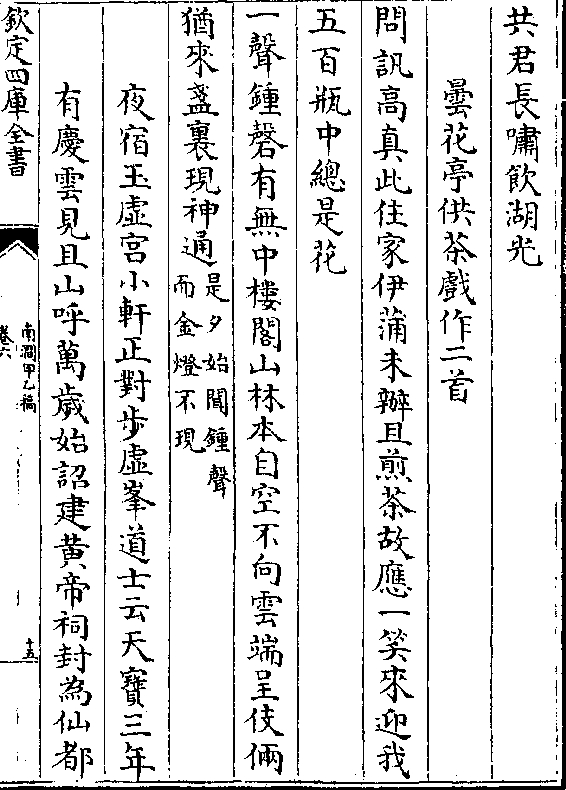 共君長嘯飲湖光
曇花亭供茶戲作二首
問訊高真此住家伊蒲未辦且煎茶故應一笑來迎我
五百瓶中總是花
一聲鍾磬有無中樓閣山林本自空不向雲端呈伎倆
猶來盞裏現神通是夕始聞鍾聲
而金燈不現
夜宿玉虛宫小軒正對步虛峯道士云天寶三年
有慶雲見且山呼萬歲始詔建黄帝祠封為仙都
欽定四庫全書
南澗甲乙稿
卷六
十五